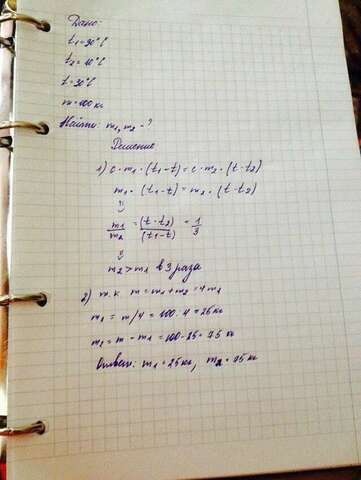 Дано:
t1=90°C
t2=10°C
t=30°C
m=100 кг
Найти: m1, m2 - ?
Решение
1) c·m1·(t1-t)=c·m2·(t-t2)
m1·(t1-t)=m2·(t-t2)
⇓
m1/m2 = (t-t2)/(t1-t) = 1/3
⇓
m2>m1 в 3 раза
2) т.к m=m1+m2=4m1
m1 = m/4 = 100:4=25кг
m2 = m-m1=100-25=75кг
Ответ: m1=25кг, m2=75кг